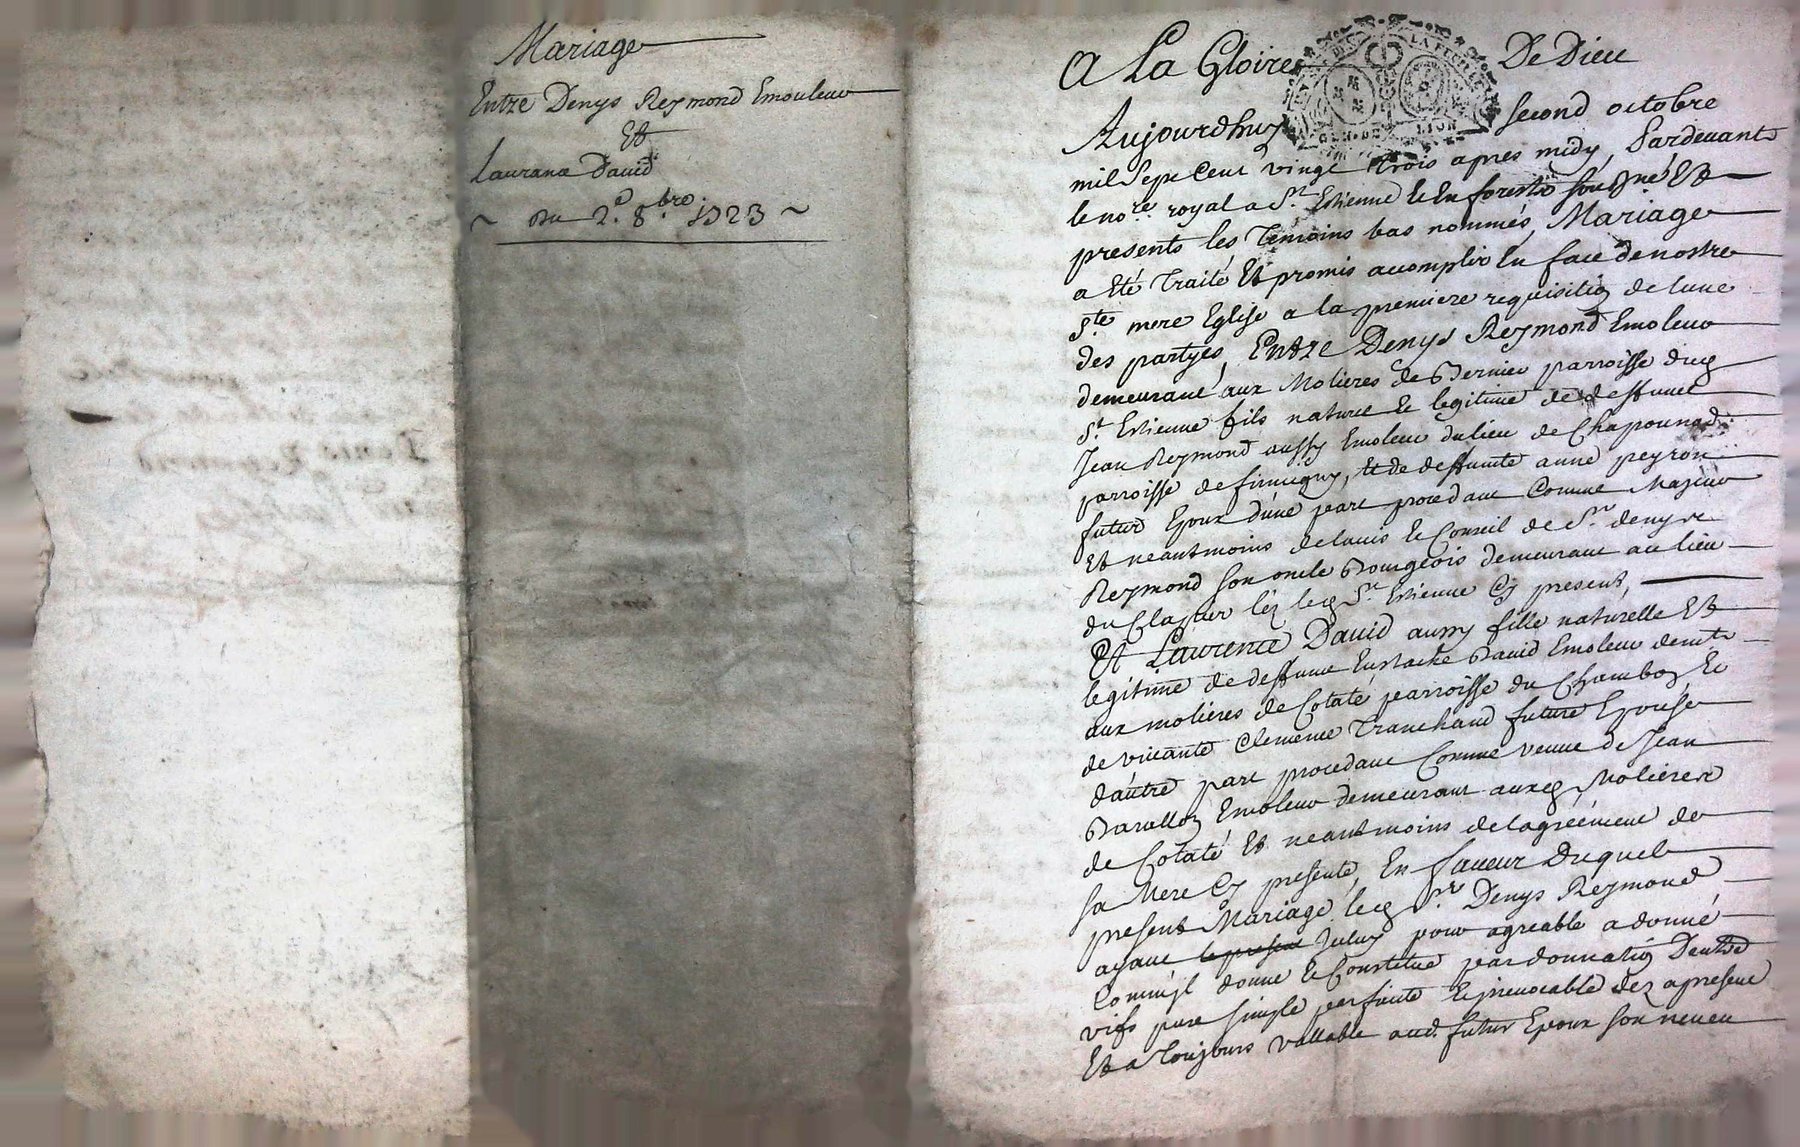 Mariage
Entre Denys Reymond Emouleur
Et
Laurance David
~ Du 2.e 8.bre 1723 ~
A La Gloire De Dieu
Aujourdhuy second octobre
mil Sept Cent vingt trois apres midy, Pardevant
le no.re royal a S.t Estienne En forests soubsigné Et
presents les Temoins bas nommés, Mariage
a Eté Traité Et promis accomplir En face de nostre
S.te mere Eglise a la premiere requisition de lune
des partyes, Entre Denys Reymond Emoleur
demeurant aux Molieres de Bernier parroisse dud
S.t Estienne fils naturel Et legitime de deffunct
Jean Reymond aussy Emoleur du lieu de Chaponnod
parroisse de firminy, Et de deffunte anne peyron
futur Epoux d'une part procedant Comme Majeur
Et neantmoins de lavis Et Conseil de S.r denys
Reymond son oncle Bourgeois demeurant au lieu
du Clapier léz led S.t Estienne Cy present,
Et Laurence David aussy fille naturelle Et
legitime de deffunt Eustache David Emoleur demt
aux molieres de Cotate parroisse du Chambon Et
de vivante Clemence Tranchand future Epouse
d'autre part procedant Comme veuve de Jean
Barallon Emoleur demeurant auxd Molieres
de Cotaté Et neantmoins de lagréement de
sa Mere Cy presente, En faveur Duquel
present Mariage, led S.r Denys Reymond
ayant le present Iceluy pour agreable a donné
Comm'jl donne Et Constitue par donnation Dentre
vifs pure simple parfaite Et irrevocable dez apresent
Et a Toujours vallable aud. futur Epoux son neveu
LA FEUILLE
GEN. DE LION